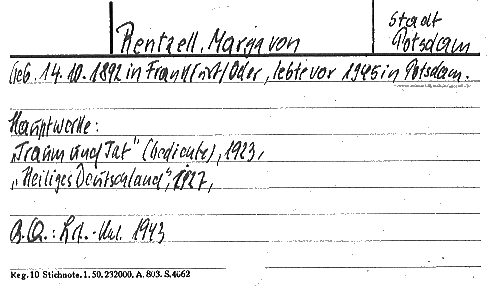 Rentzell, Marga von
Stadt
Potsdam
Geb. 14.10.1892 in Frankfurt/Oder, lebte vor 1945 in Potsdam.
Hauptwerke:
„Traum und Tat" (Gedichte), 1923,
„Heiliges Deutschland", 1927,
B.Q.: Lit.-Kal. 1943
Reg. 10 Stichnote. 1. 50. 232000. A. 803. S. 4662